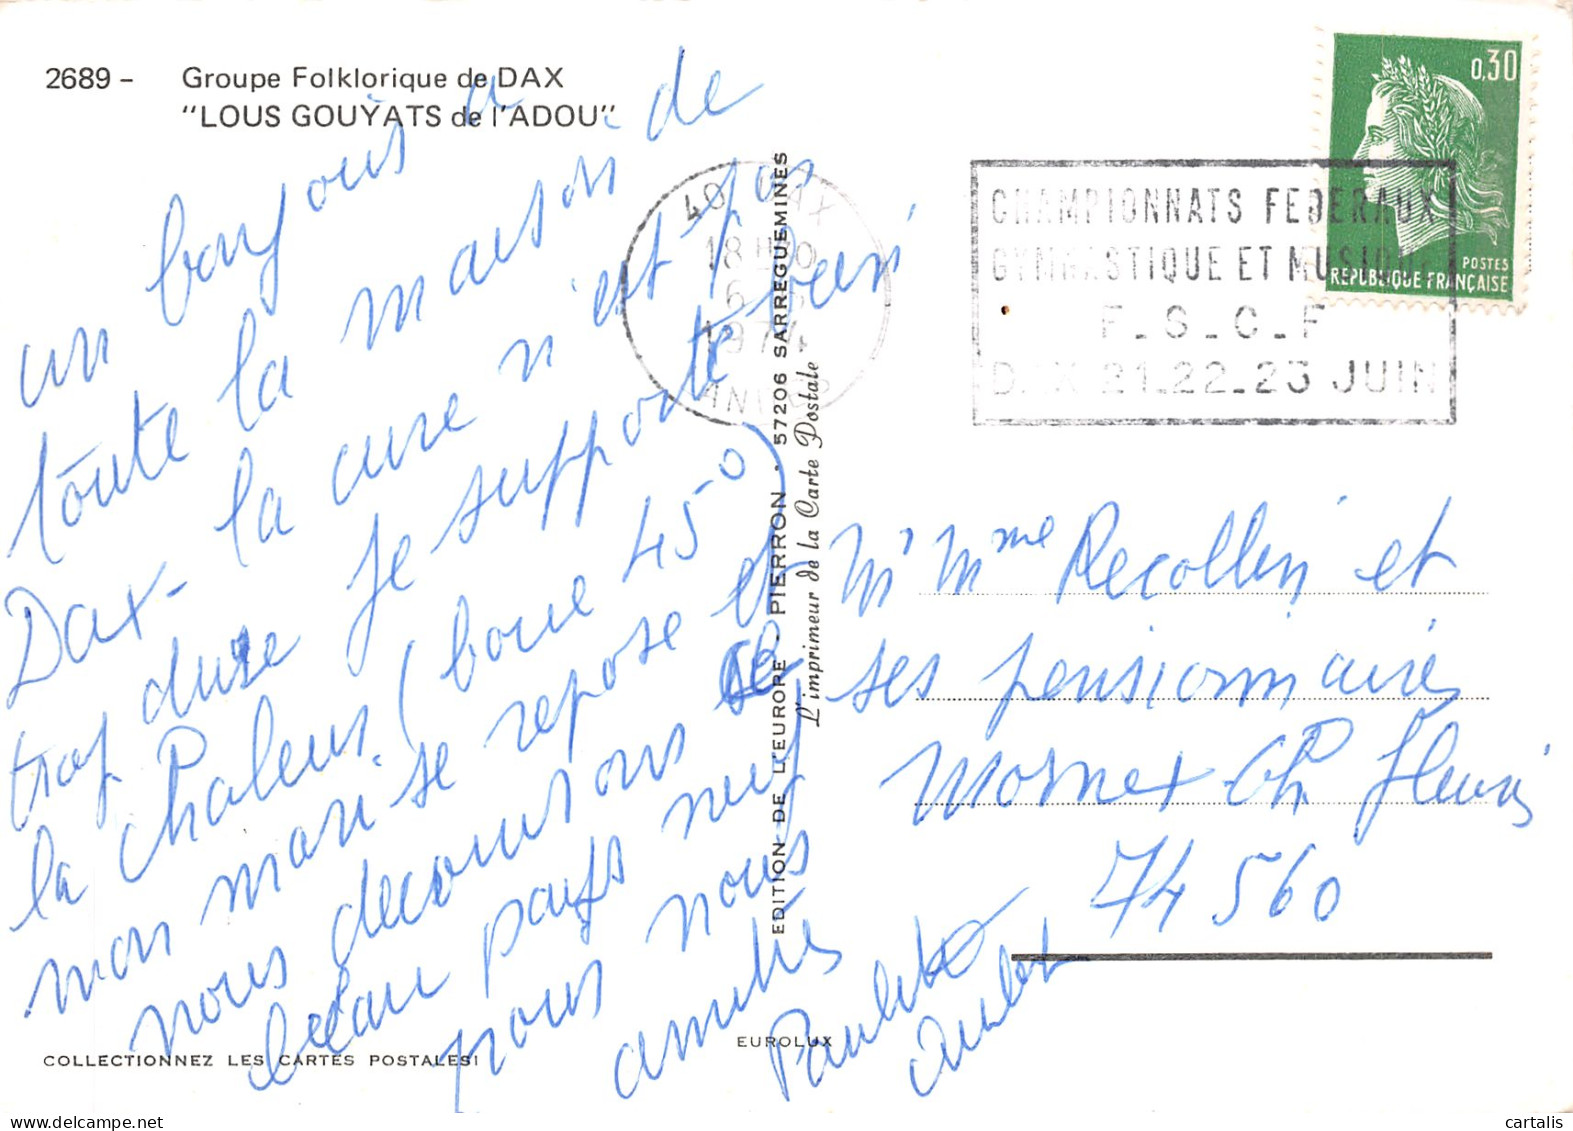 2689 - Groupe Folklorique de DAX
"LOUS GOUYATS de l'ADOU"
un bonjour à
toute la maison de
Dax - la cure n'est pas
trop dure je supporte bien
la chaleur. (boue 45°)
mon mari se repose et
nous decouvrons ce
beau pays neuf
pour nous
amitiés
Paulette
40 DAX
18 H
1974
CHAMPIONNATS FEDERAUX
GYMNASTIQUE ET MUSIQUE
F_S_C_F
DAX 21_22_23 JUIN
0,30
POSTES
REPUBLIQUE FRANÇAISE
EDITION DE L'EUROPE - PIERRON • 57206 SARREGUEMINES
L'imprimeur de la Carte Postale
M Mme Recollin et
ses pensionnaires
Mornex Ch fleuri
74560
EUROLUX
COLLECTIONNEZ LES CARTES POSTALES!
cartalis